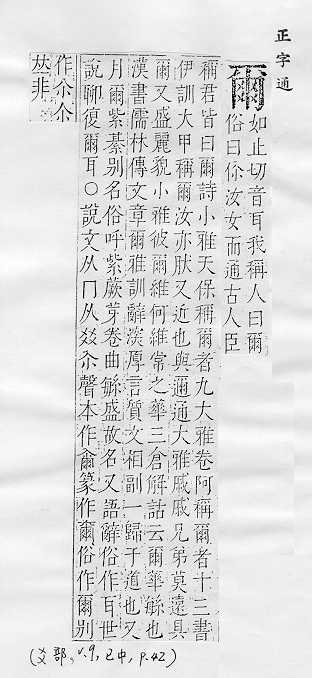 正字通
爾
如止切音耳我稱人曰爾
俗曰伱汝女而通古人臣
稱君皆曰爾詩小雅天保稱爾者九大雅卷阿稱爾者十三書
伊訓大甲稱爾汝亦肰又近也與邇通大雅戚戚兄弟莫遠具
爾又盛麗貌小雅彼爾維何維常之華三倉解詁云爾華緐也
漢書儒林傳文章爾雅訓辭深厚言質文相副一歸于道也又
月爾紫綦别名俗呼紫蕨芽卷曲緐盛故名又語辭俗作耳世
說聊復爾耳○說文从冂从㸚尒聲本作篆作爾俗作爾别
作尒
𠀤非
(爻部, v.9, 巳中, p.42)